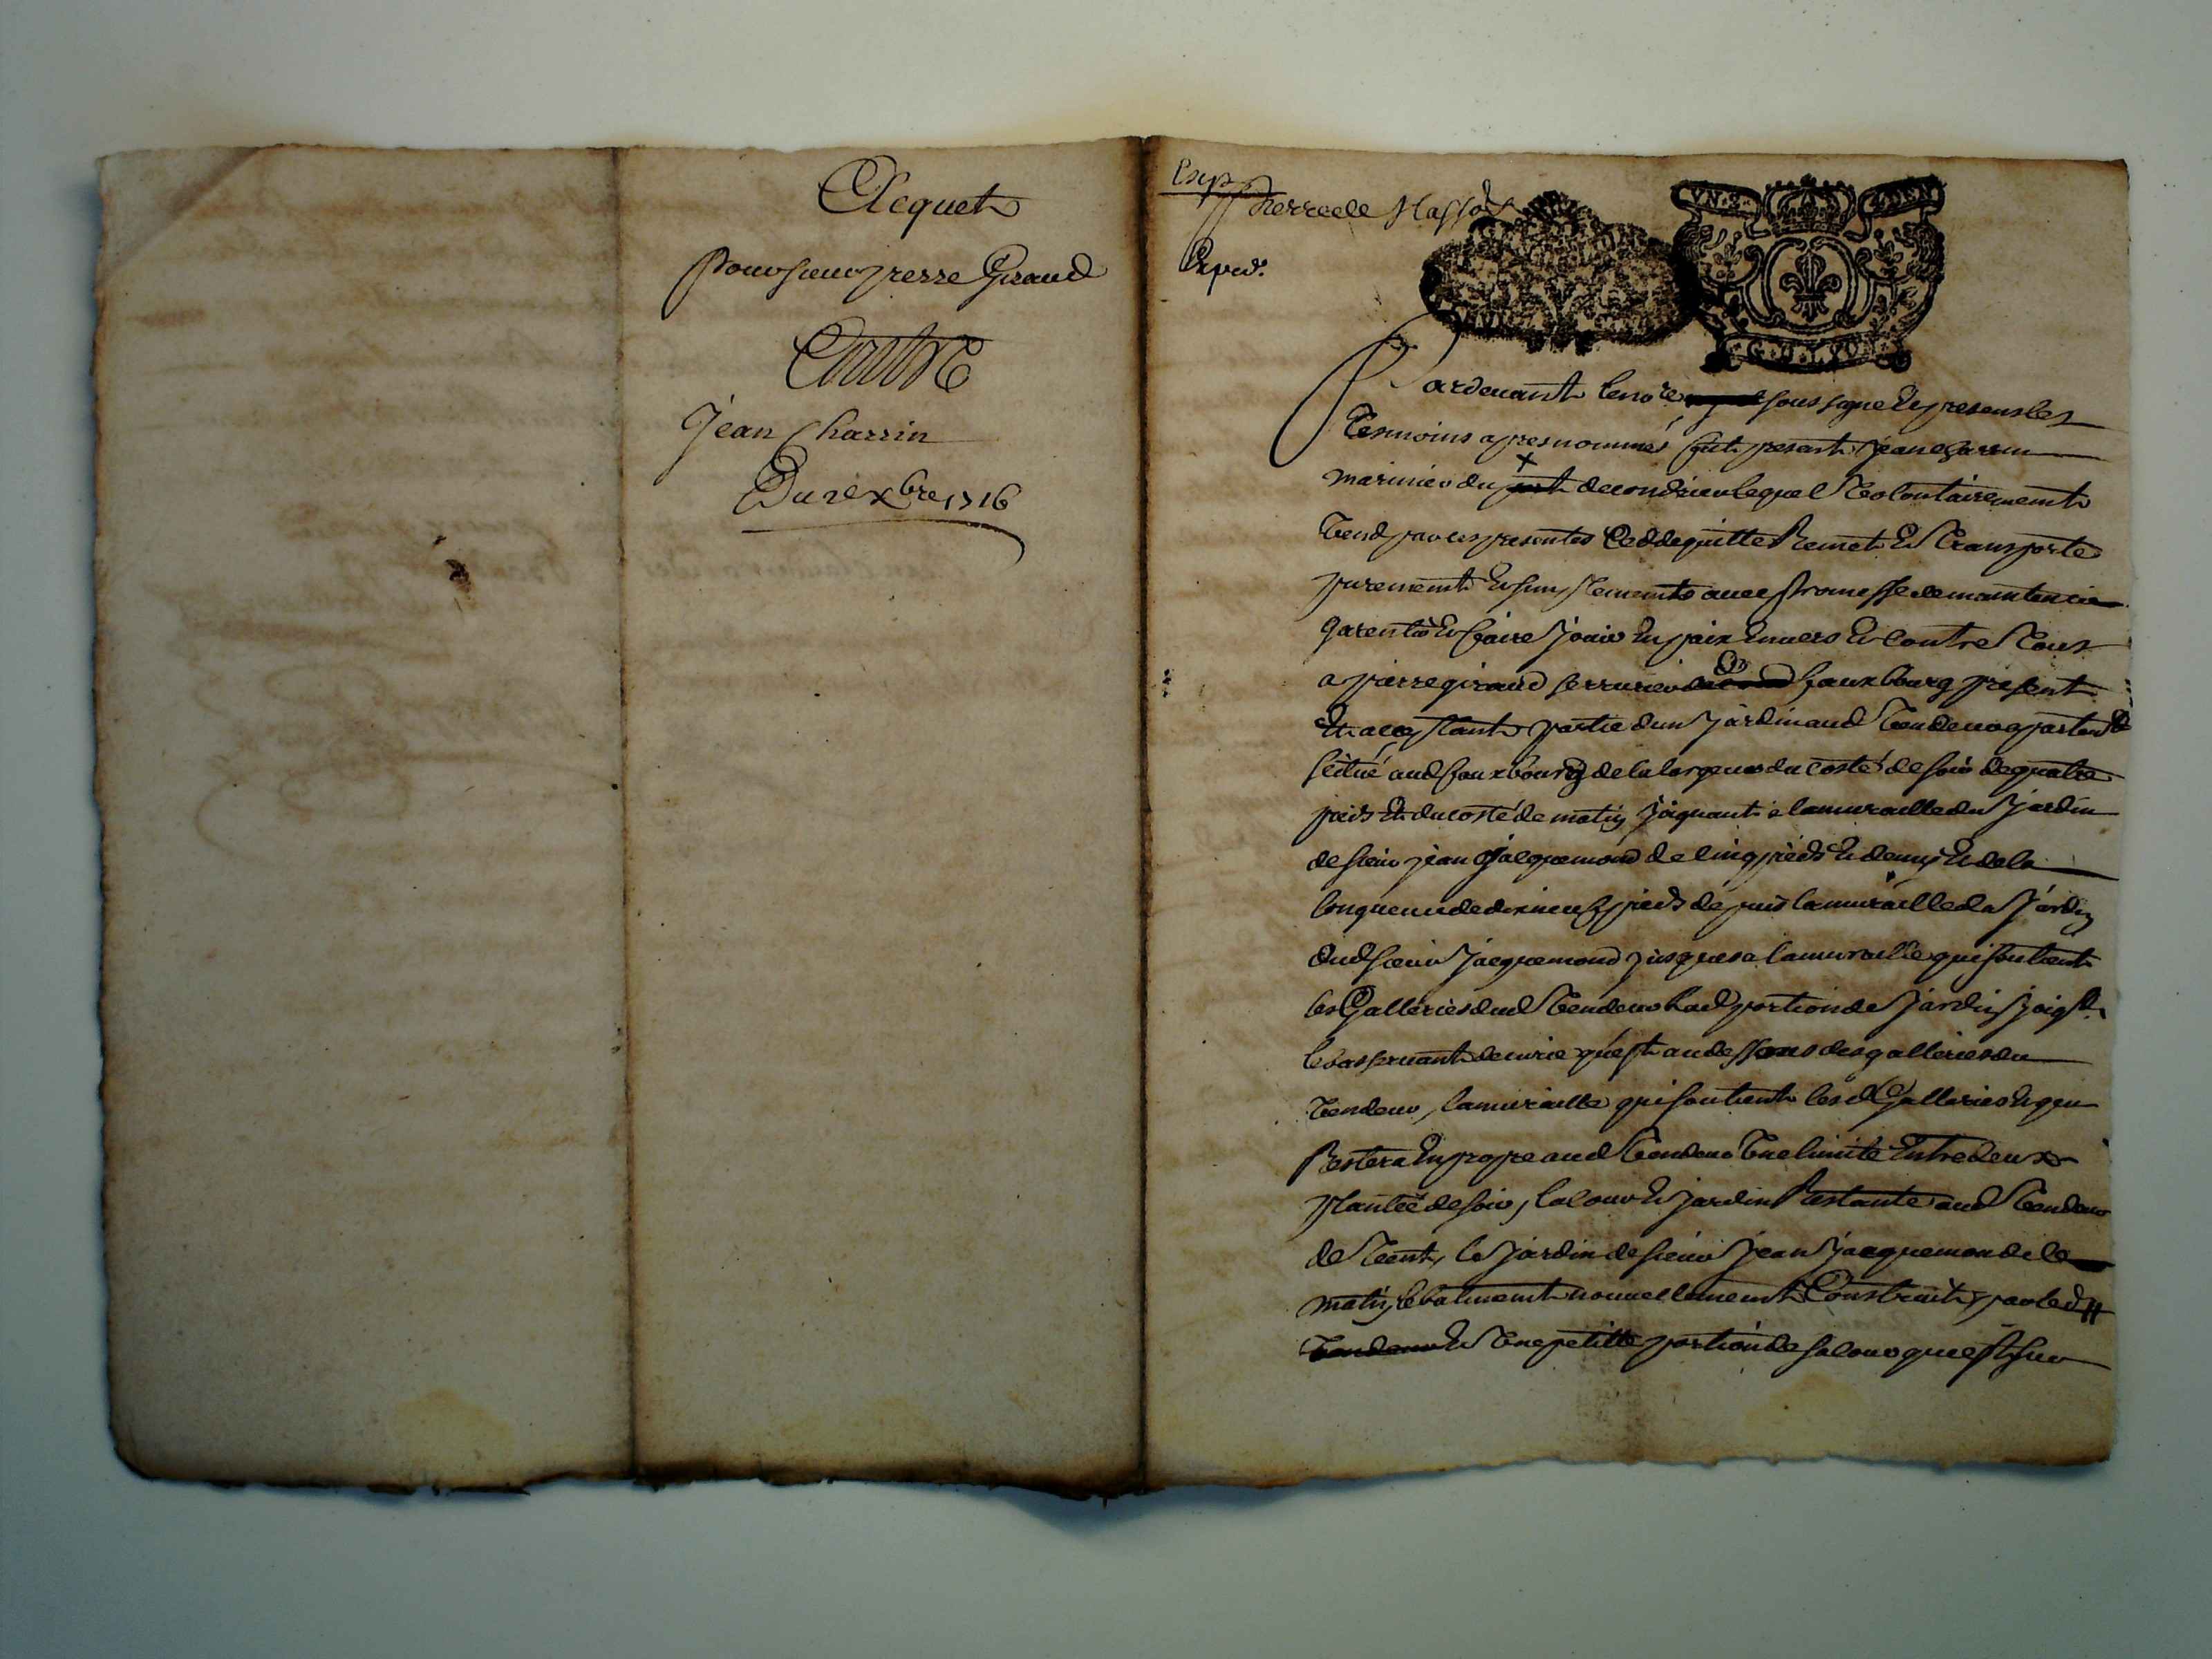 Acquet
pour sieur pierre Giraud
Contre
Jean Charrin
Du 12e xbre 1716
Exp
pierre de Masso
Exped.
VN.S. 4DEN
Pardevant le no.re soussigne Et presens les
Tesmoins apres nommés fut present jean charrin
marinier du port de condrieu lequel Volontairement
Vend par ces presentes Cedde quitte Remet Et Transporte
purement Et simplement avec promesse de maintenir
garentir Et faire jouir En paix Envers Et Contre Tous
a pierre giraud serrurier fauxbourg present
Et acceptant partie dun jardin aud Vendeur appartent
scitué aud fauxbourg de la largeur du costé de soir de quatre
pieds Et du costé de matin joignant a la muraille du jardin
de sieur jean jacquemond de cinq pieds Et demy Et de la
longueur de dix neuf pieds depuis la muraille du jardin
dud sieur jacquemond jusques a la muraille qui soutient
les Galleries dud Vendeur lad portion de jardin joigt.
le bas servant decurie quest au dessous des galleries du
Vendeur, la muraille qui soutient lesd Galleries Et qui
Restera En propre aud Vendeur Une limite Entre deux
plantée de soir, la cour Et jardin Restante aud Vendeur
de Vent, le jardin de sieur jean jacquemond de
matin, le batiment nouvellement Construit par led
Vendeur Et Une petitte portion de sa cour que est sur